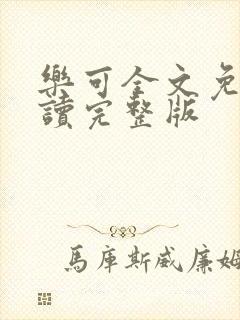 樂可全文免
讀完整版
馬庫斯威廉姆